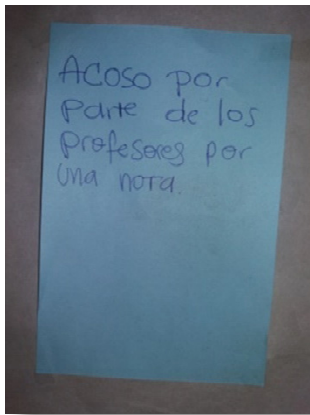 Acoso por
parte de los
profesores por
una nota.